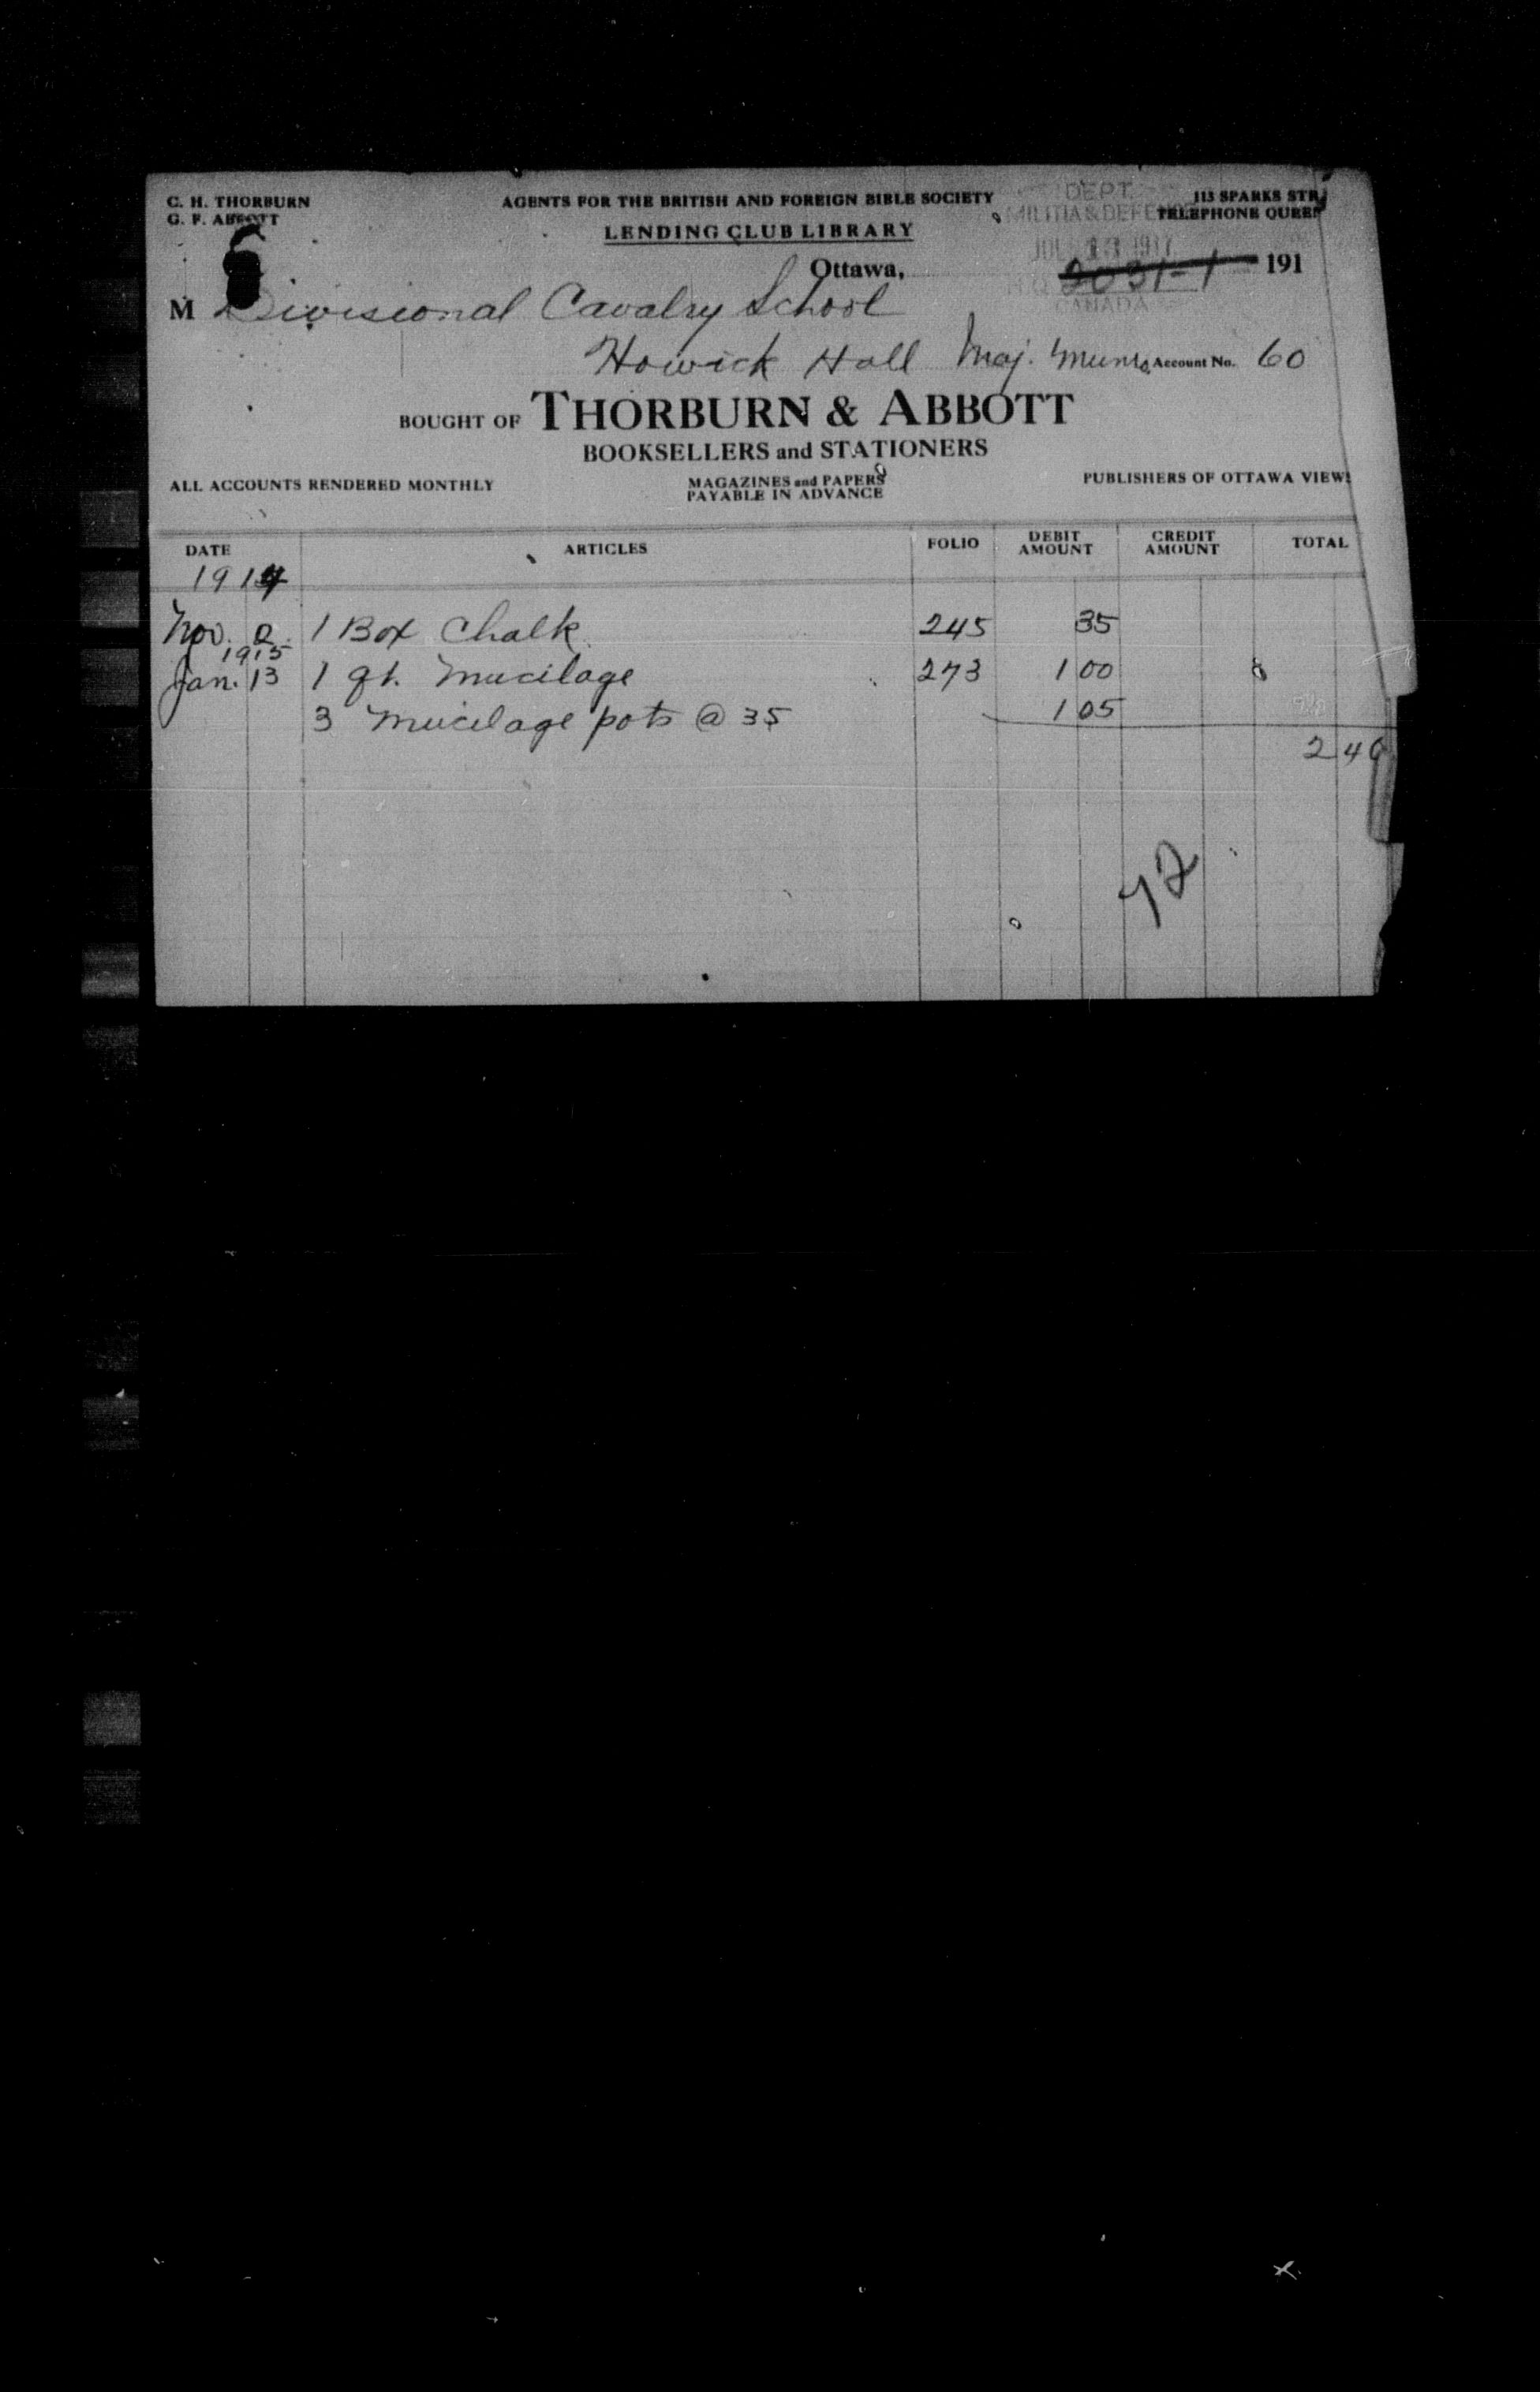 C. H. THORBURN
G. F. ABBOTT
AGENTS FOR THE BRITISH AND FOREIGN BIBLE SOCIETY
LENDING CLUB LIBRARY
113 SPARKS STR
TELEPHONE QUEEN
DEPT.
MILITIA & DEFENCE
JUL 13 1917
H.Q. 2031-1
CANADA
Ottawa, 191
M Divisional Cavalry School
Howick Hall Maj. Munro Account No. 60
BOUGHT OF THORBURN & ABBOTT
BOOKSELLERS and STATIONERS
ALL ACCOUNTS RENDERED MONTHLY
MAGAZINES and PAPERS
PAYABLE IN ADVANCE
PUBLISHERS OF OTTAWA VIEWS
DATE ARTICLES FOLIO DEBIT AMOUNT CREDIT AMOUNT TOTAL
1914
Nov. 2 1 Box Chalk 245 35
1915
Jan. 13 1 qt. Mucilage 273 1 00
3 Mucilage pots @ 35 1 05
2 40
72